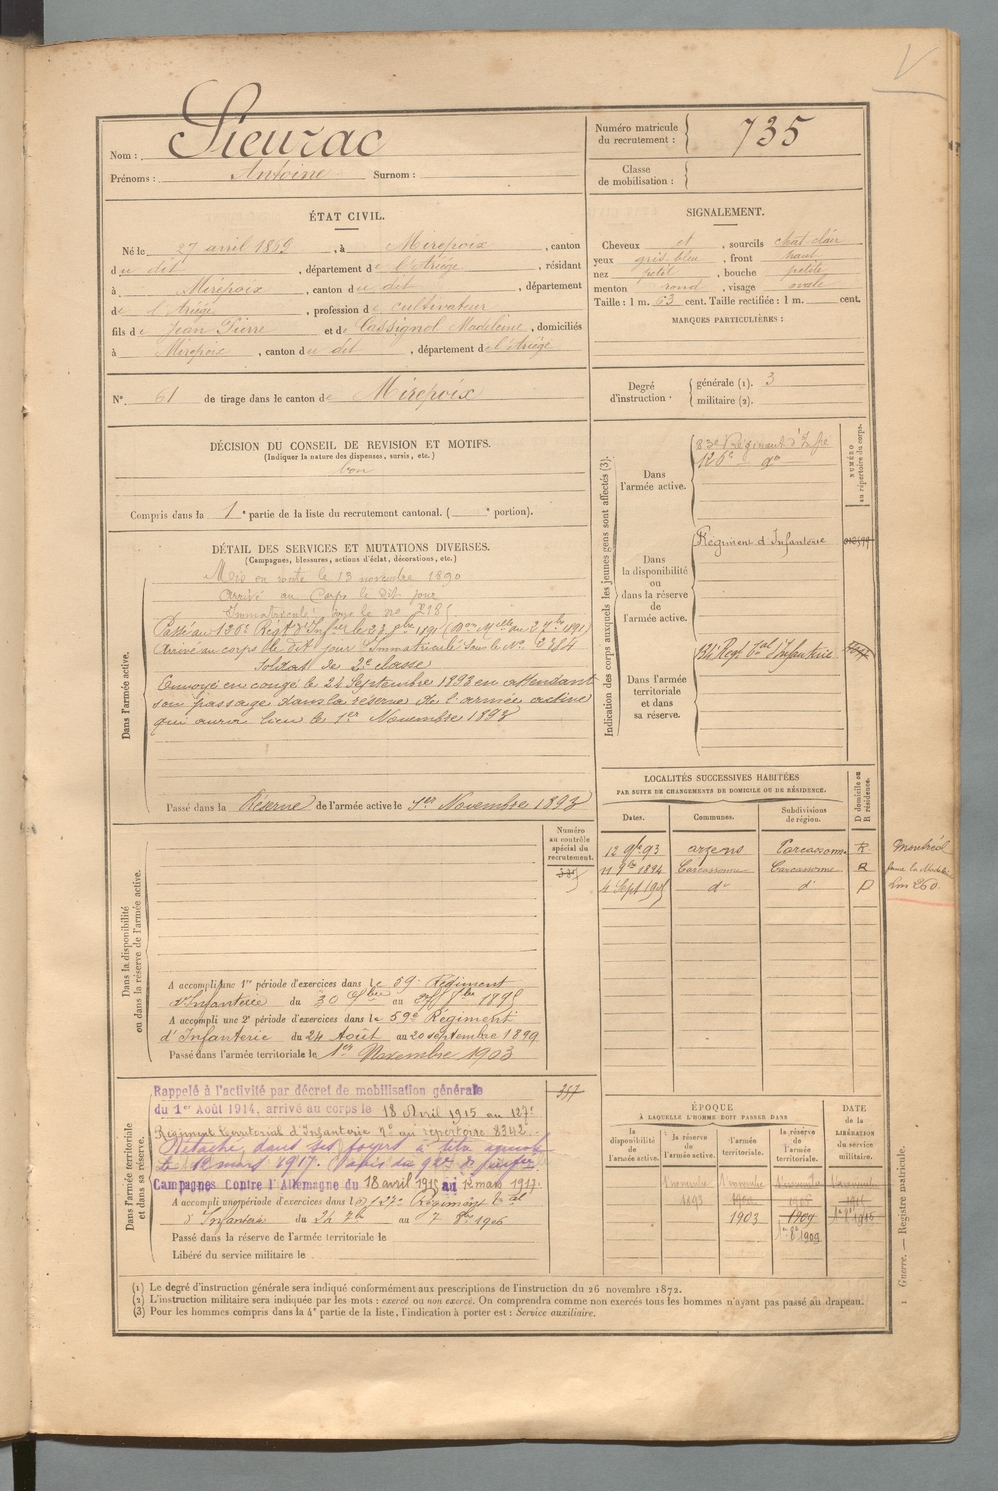 Nom : Sieurac
Prénoms : Antoine Surnom :
Numéro matricule du recrutement : 735
Classe de mobilisation :
ÉTAT CIVIL.
Né le 27 avril 1869, à Mirepoix, canton
du dit, département de l'Ariège, résidant
à Mirepoix, canton du dit, département
de l'Ariège, profession de cultivateur
fils de Jean Pierre et de Cassignol Madeleine, domiciliés
à Mirepoix, canton du dit, département de l'Ariège
SIGNALEMENT.
Cheveux et, sourcils chat clair
yeux gris bleu, front haut
nez petit, bouche petite
menton rond, visage ovale
Taille : 1 m. 63 cent. Taille rectifiée : 1 m. cent.
MARQUES PARTICULIÈRES :
N° 61 de tirage dans le canton de Mirepoix
Degré d'instruction : générale (1). 3
militaire (2).
DÉCISION DU CONSEIL DE REVISION ET MOTIFS.
(Indiquer la nature des dispenses, sursis, etc.)
bon
Compris dans la 1e partie de la liste du recrutement cantonal. ( e portion).
DÉTAIL DES SERVICES ET MUTATIONS DIVERSES.
(Campagnes, blessures, actions d'éclat, décorations, etc.)
Dans l'armée active.
Mis en route le 13 novembre 1890
Arrivé au Corps le dit jour
Immatriculé sous le no
Passé au 126e Régt d'Infie le
Arrivé au corps le dit jour Immatriculé sous le No 2384
Soldat de 2e classe
Envoyé en congé le 24 Septembre 1893 en attendant
son passage dans la réserve de l'armée active
qui aura lieu le 1er Novembre 1893
Passé dans la Réserve de l'armée active le 1er Novembre 1893
Indication des corps auxquels les jeunes gens sont affectés (3).
NUMÉRO au répertoire du corps.
Dans l'armée active.
83e Régiment d'Infie
126e do
Dans la disponibilité ou dans la réserve de l'armée active.
Régiment d'Infanterie
Dans l'armée territoriale et dans sa réserve.
Regt Tal d'Infanterie
LOCALITÉS SUCCESSIVES HABITÉES
PAR SUITE DE CHANGEMENTS DE DOMICILE OU DE RÉSIDENCE.
Dates. Communes. Subdivisions de région. D domicile ou R résidence.
12 9bre 93 Arzens Carcassonne R
11 9bre 1894 Carcassonne Carcassonne R
4 Sept do do D
Montréal
Dans la disponibilité ou dans la réserve de l'armée active.
Numéro au contrôle spécial du recrutement.
A accompli une 1re période d'exercices dans le 59e Régiment
d'Infanterie du 30 au 1895
A accompli une 2e période d'exercices dans le 59e Régiment
d'Infanterie du 24 Août au 20 septembre 1899
Passé dans l'armée territoriale le 1er Novembre 1903
Dans l'armée territoriale et dans sa réserve.
Rappelé à l'activité par décret de mobilisation générale
du 1er Août 1914, arrivé au corps le 18 Avril 1915 au 127e
Régiment Territorial d'Infanterie no au répertoire 8342.
Détaché dans ses foyers à titre agricole
le 12 mars 1917.
Campagnes Contre l'Allemagne du 18 avril 1915 au 12 mars 1917.
A accompli une période d'exercices dans le 127e Régiment Tal
d'Infanterie du 24 7bre au 7 8bre 1906
Passé dans la réserve de l'armée territoriale le
Libéré du service militaire le
ÉPOQUE
À LAQUELLE L'HOMME DOIT PASSER DANS
la disponibilité de l'armée active. la réserve de l'armée active. l'armée territoriale. la réserve de l'armée territoriale.
DATE de la LIBÉRATION du service militaire.
1 novembre 1 novembre 1 novembre 1 novembre
1893
1903 1909
1909
(1) Le degré d'instruction générale sera indiqué conformément aux prescriptions de l'instruction du 26 novembre 1872.
(2) L'instruction militaire sera indiquée par les mots : exercé ou non exercé. On comprendra comme non exercés tous les hommes n'ayant pas passé au drapeau.
(3) Pour les hommes compris dans la 4e partie de la liste, l'indication à porter est : Service auxiliaire.
1 Guerre. — Registre matricule.